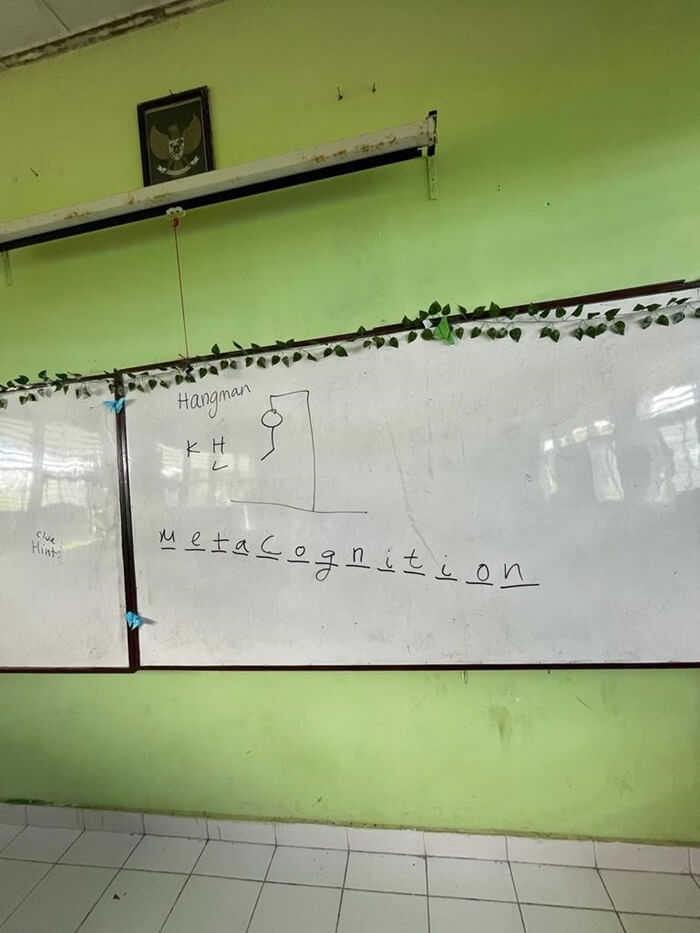 Hangman
K H
L
Clue:
Hint:
MetaCognition